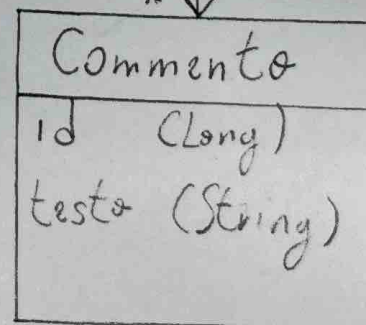 Commento
id (Long)
testo (String)